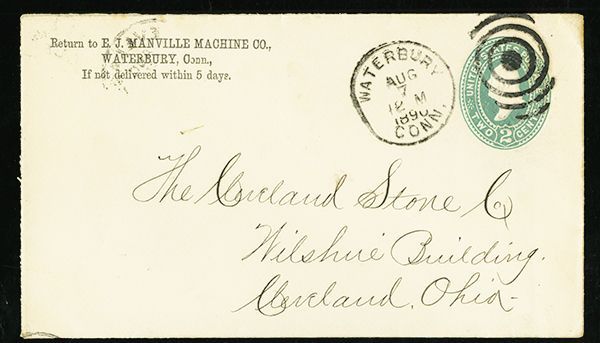 Return to E. J. MANVILLE MACHINE CO.,
WATERBURY, Conn.,
If not delivered within 5 days.
WATERBURY
AUG
7
12 M
1890
CONN.
UNITED STATES
TWO 2 CENTS
The Cleveland Stone Co
Wilshire Building.
Cleveland, Ohio